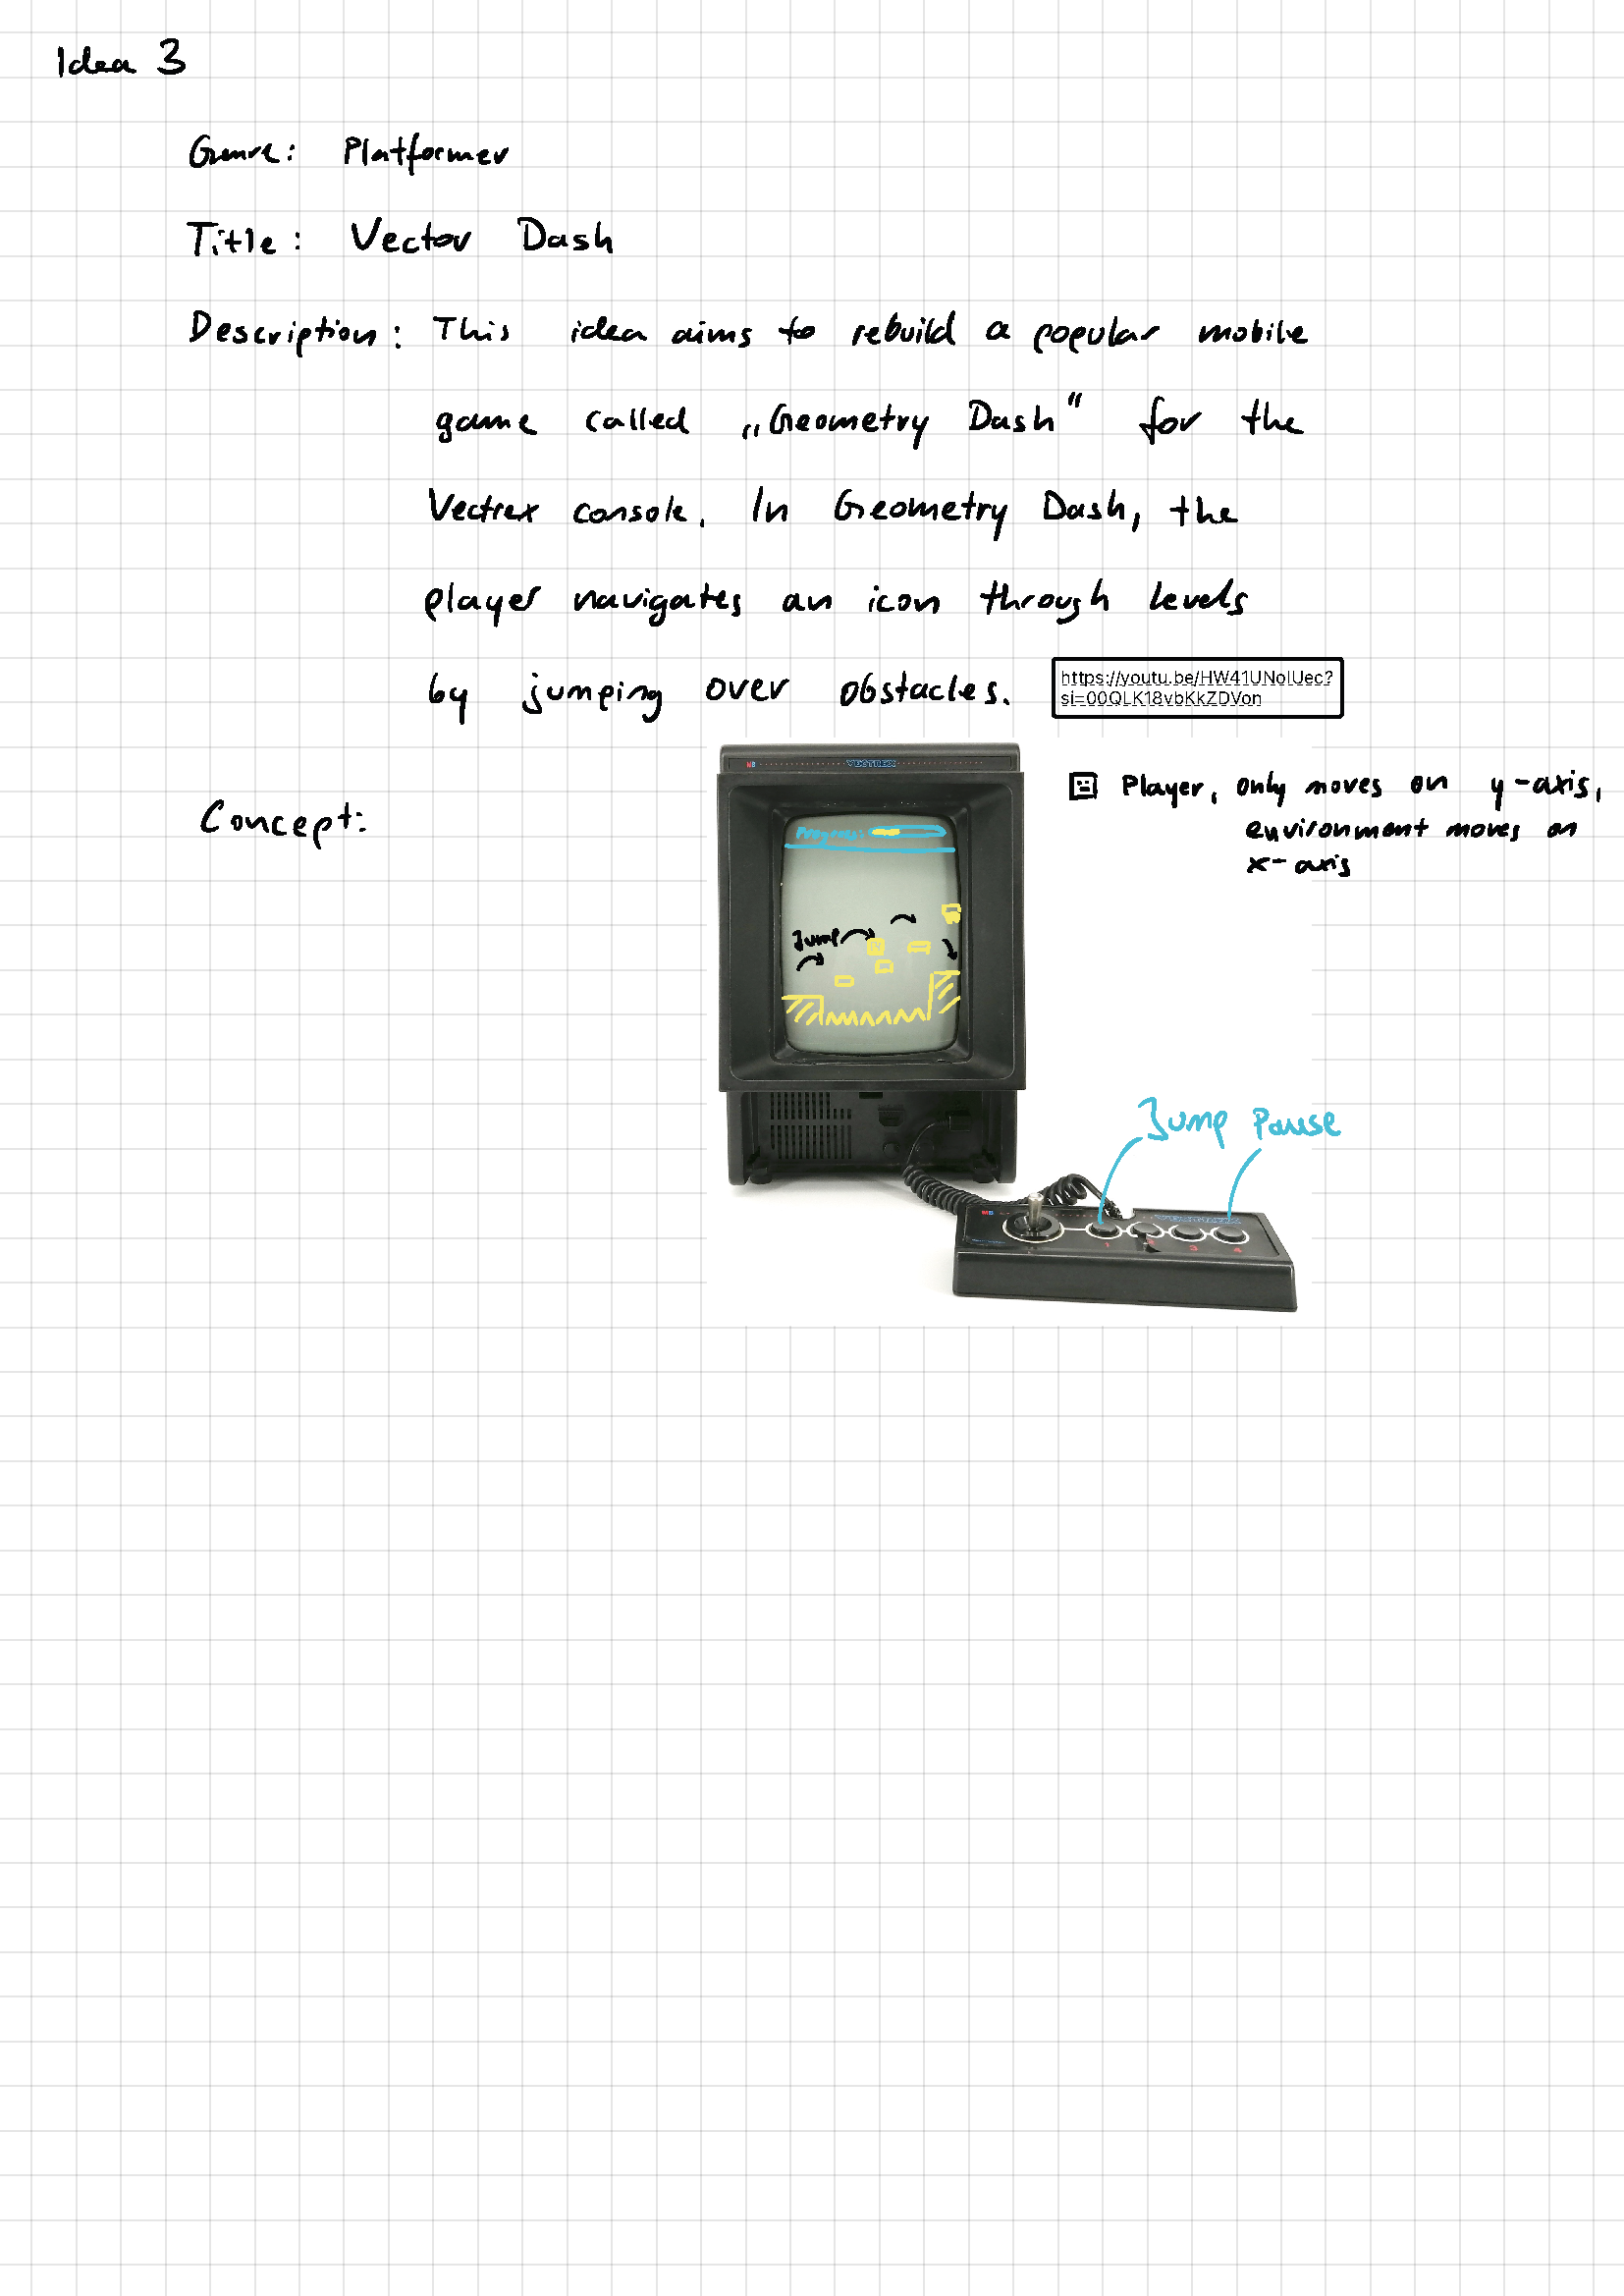 Idea 3
Genre: Platformer
Title: Vector Dash
Description: This idea aims to rebuild a popular mobile
game called „Geometry Dash" for the
Vectrex console. In Geometry Dash, the
player navigates an icon through levels
by jumping over obstacles.
https://youtu.be/HW41UNolUec?
si=00QLK18vbKkZDVon
Concept:
Player, only moves on y-axis,
environment moves on
x-axis
MB VECTREX
Progress:
Jump
Jump Pause
MB VECTREX
1 3 4